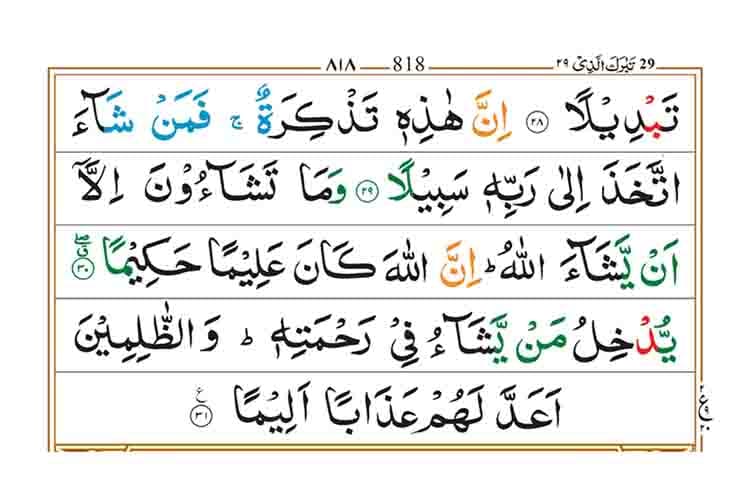 ٨١٨ 818 ٢٩ تَبٰرَكَ الَّذِىْ 29
تَبْدِيْلًا ﴿٢٨﴾ اِنَّ هٰذِهٖ تَذْكِرَةٌ ۚ فَمَنْ شَآءَ
اتَّخَذَ اِلٰى رَبِّهٖ سَبِيْلًا ﴿٢٩﴾ وَمَا تَشَآءُوْنَ اِلَّاۤ
اَنْ يَّشَآءَ اللّٰهُ ؕ اِنَّ اللّٰهَ كَانَ عَلِيْمًا حَكِيْمًا ﴿٣٠﴾ۖق
يُّدْخِلُ مَنْ يَّشَآءُ فِىْ رَحْمَتِهٖ ؕ وَالظّٰلِمِيْنَ
اَعَدَّ لَهُمْ عَذَابًا اَلِيْمًا ﴿٣١﴾ ع